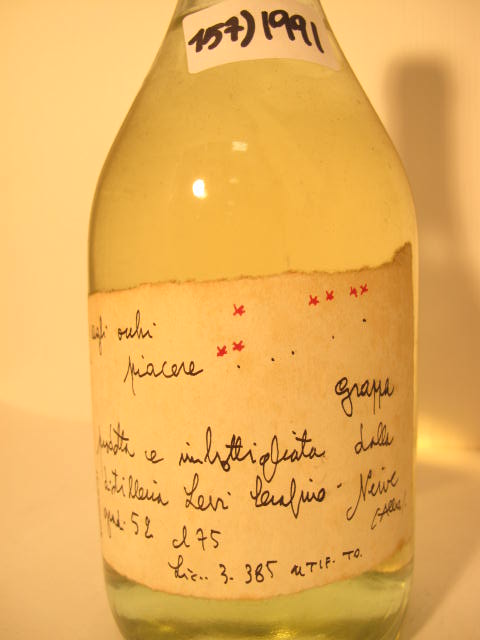 157) 1991
agli orbi
piacere
grappa
imbottigliata dalla
distilleria Levi Serafino - Neive
grad. 52 cl 75
Lic.. 3.385 UTIF. TO.